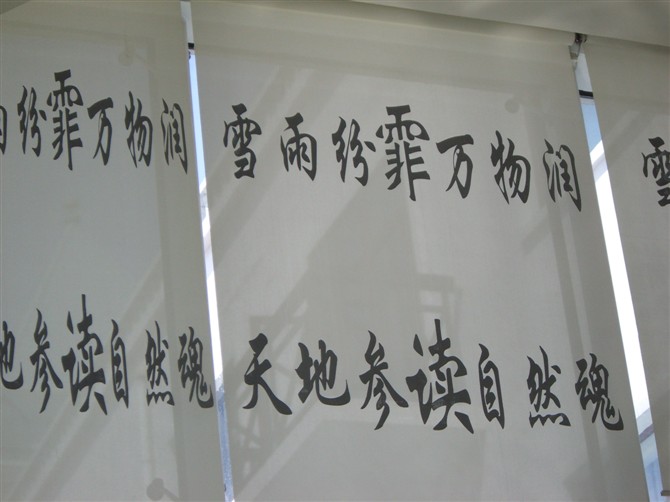 雨纷霏万物润
雪雨纷霏万物润
雪
地参读自然魂
天地参读自然魂